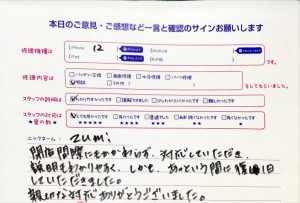 本日のご意見・ご感想など一言と確認のサインお願いします
修理機種は
iPhone 12
iPad
その他
をしてもらいました。
修理内容は
バッテリー交換 画面修理 水没修理 パーツ修理
相談 その他
スタッフの説明は
わかりやすかったです 理解できました 少しわかりにくかったです 難しかったです
スタッフの対応は
★星の数★
とても良かったです 良かったです 普通でした
★★★★★ ★★★★ ★★★ ★★ ★
ニックネーム： zumi
閉店間際にもかかわらず、対応していただき
説明もわかりやすく、しかも、あっという間に修理
していただきました。
親切な対応ありがとうございました。